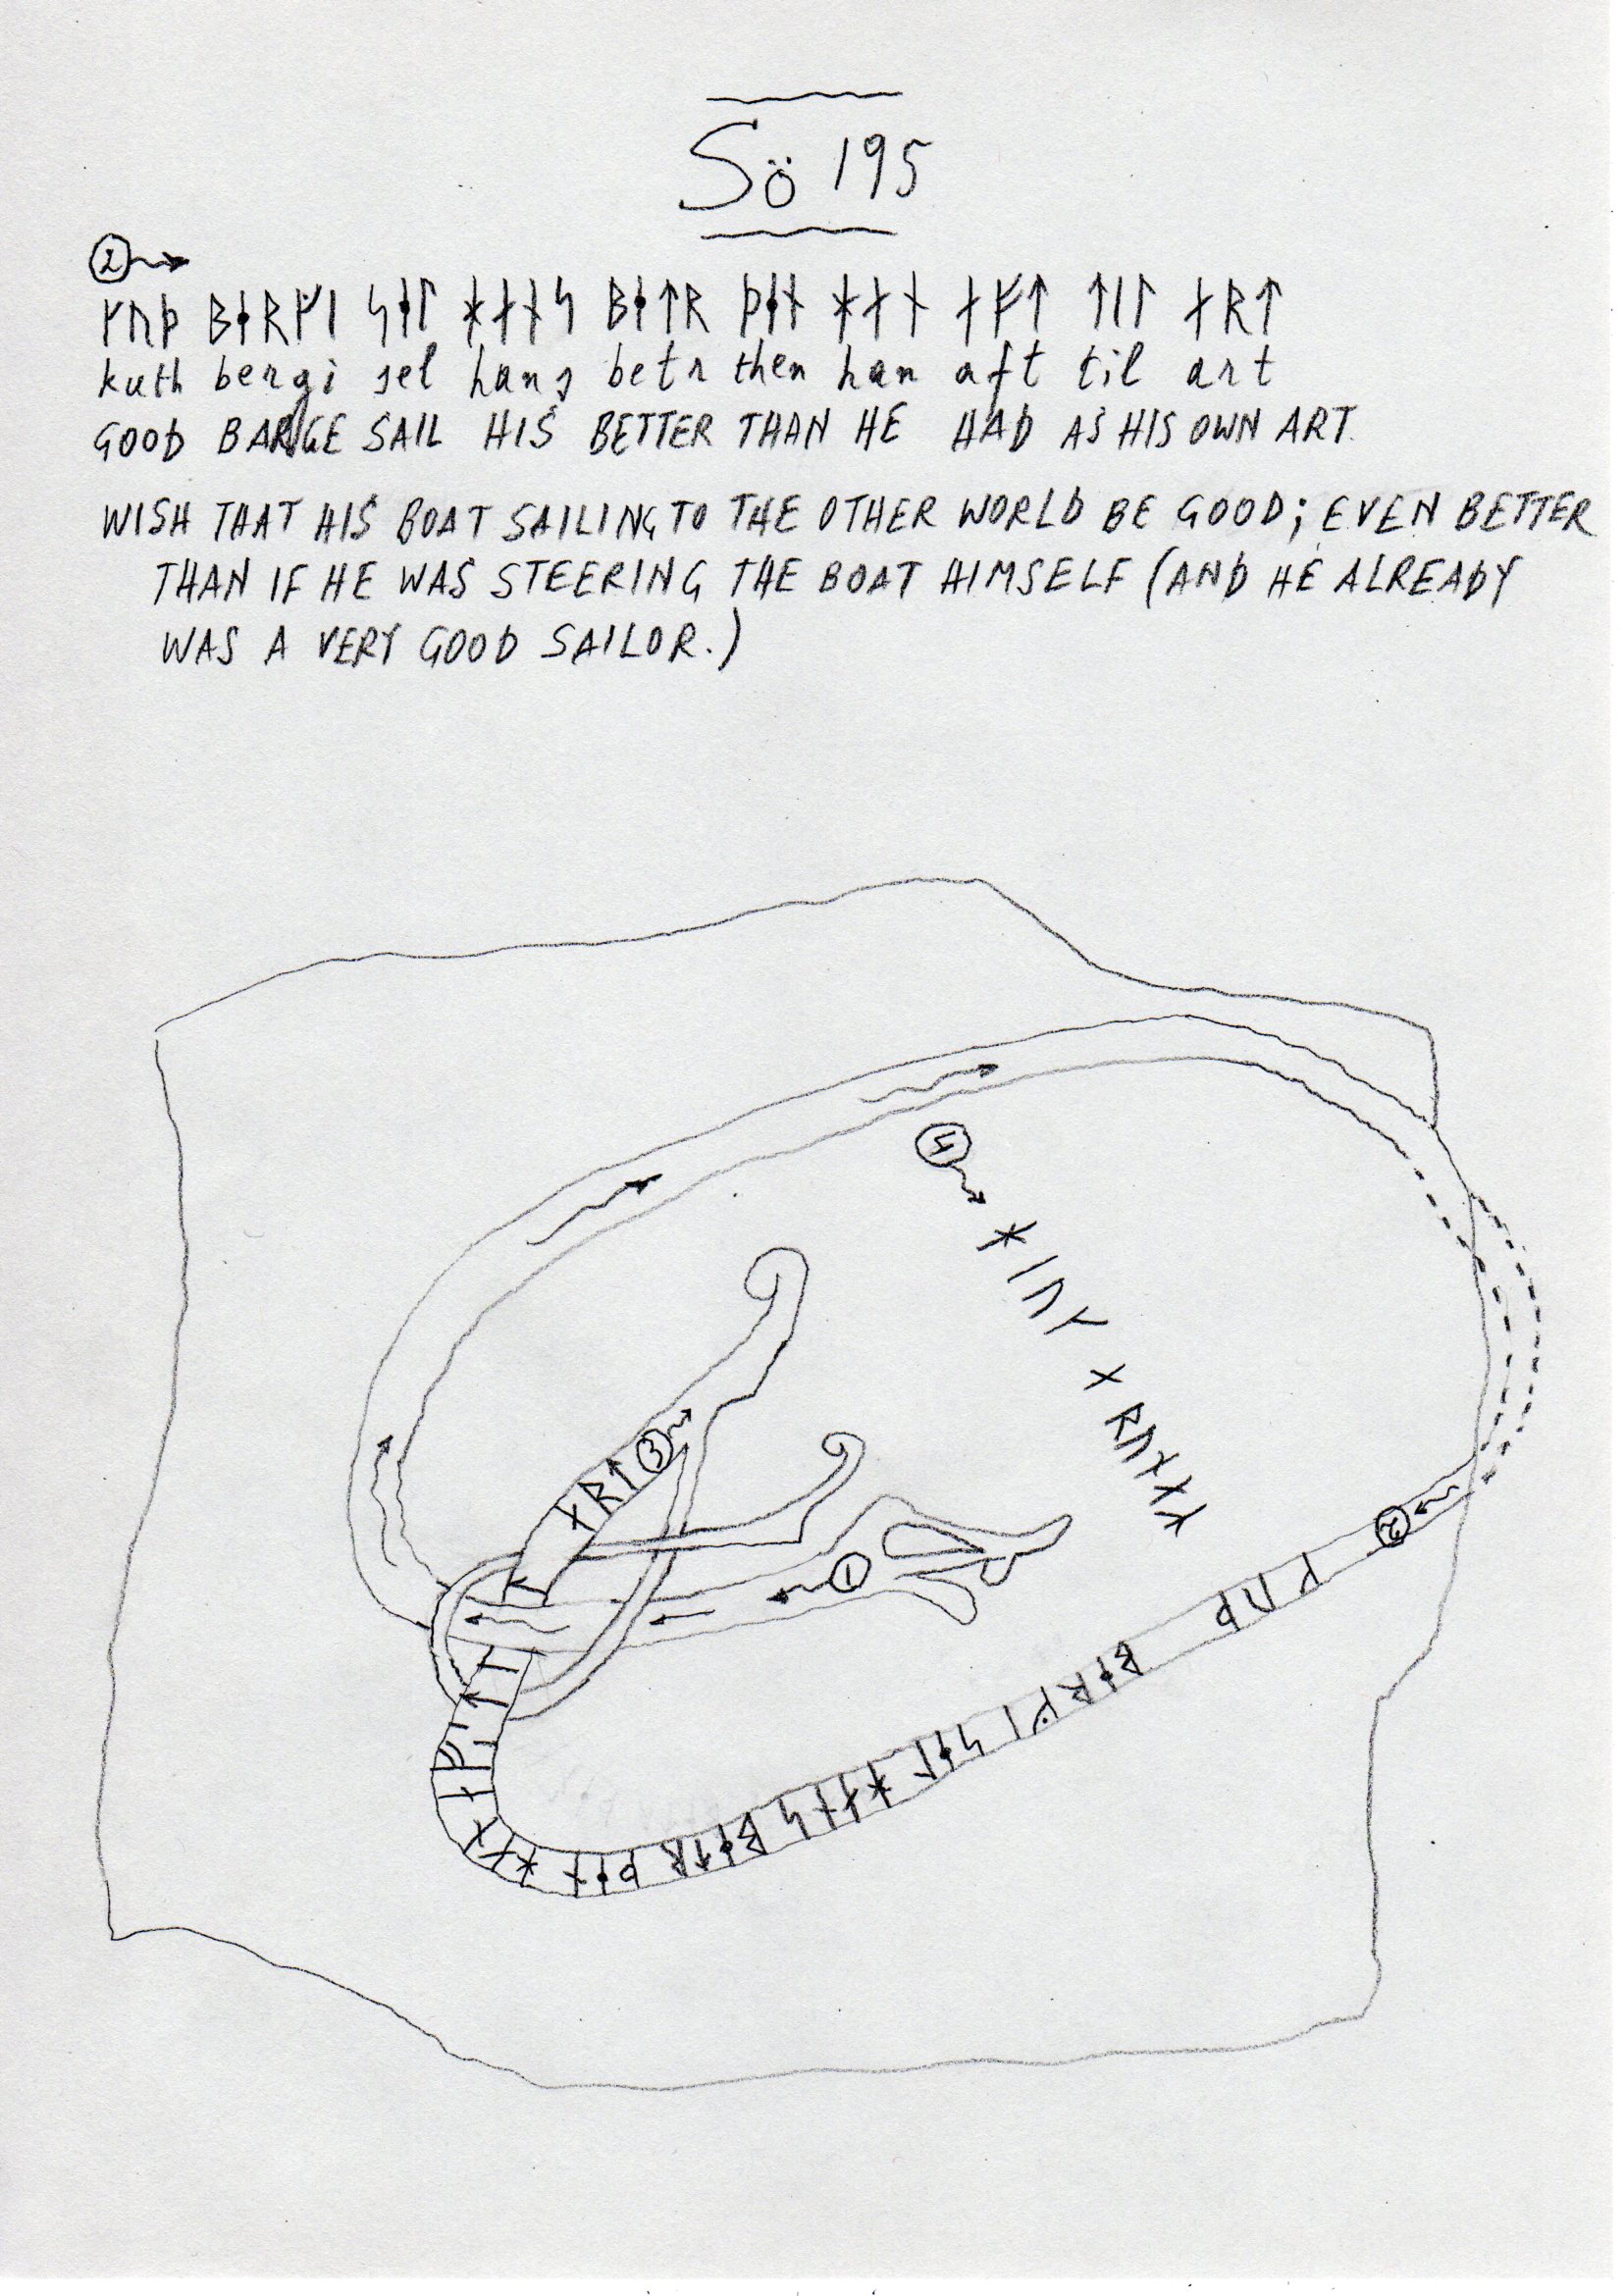 Sö 195
2
ᚴᚢᚦ ᛒᛂᚱᚵᛁ ᛋᛂᛚ ᚼᛅᚾᛋ ᛒᛂᛏᚱ ᚦᛂᚾ ᚼᛅᚾ ᛅᚠᛏ ᛏᛁᛚ ᛅᚱᛏ
kuth bergi sel hans betr then han aft til art
GOOD BARGE SAIL HIS BETTER THAN HE HAD AS HIS OWN ART.
WISH THAT HIS BOAT SAILING TO THE OTHER WORLD BE GOOD; EVEN BETTER
THAN IF HE WAS STEERING THE BOAT HIMSELF (AND HE ALREADY
WAS A VERY GOOD SAILOR.)
4
ᚼᛁᚢᚴ × ᚱᚢᚾᛅᛦ
ᛅᚱᛏ 3
1
2
ᚴᚢᚦ ᛒᛂᚱᚵᛁ ᛋᛂᛚ ᚼᛅᚾᛋ ᛒᛂᛏᚱ ᚦᛂᚾ ᚼᛅᚾ ᛅᚠᛏ ᛏᛁᛚ